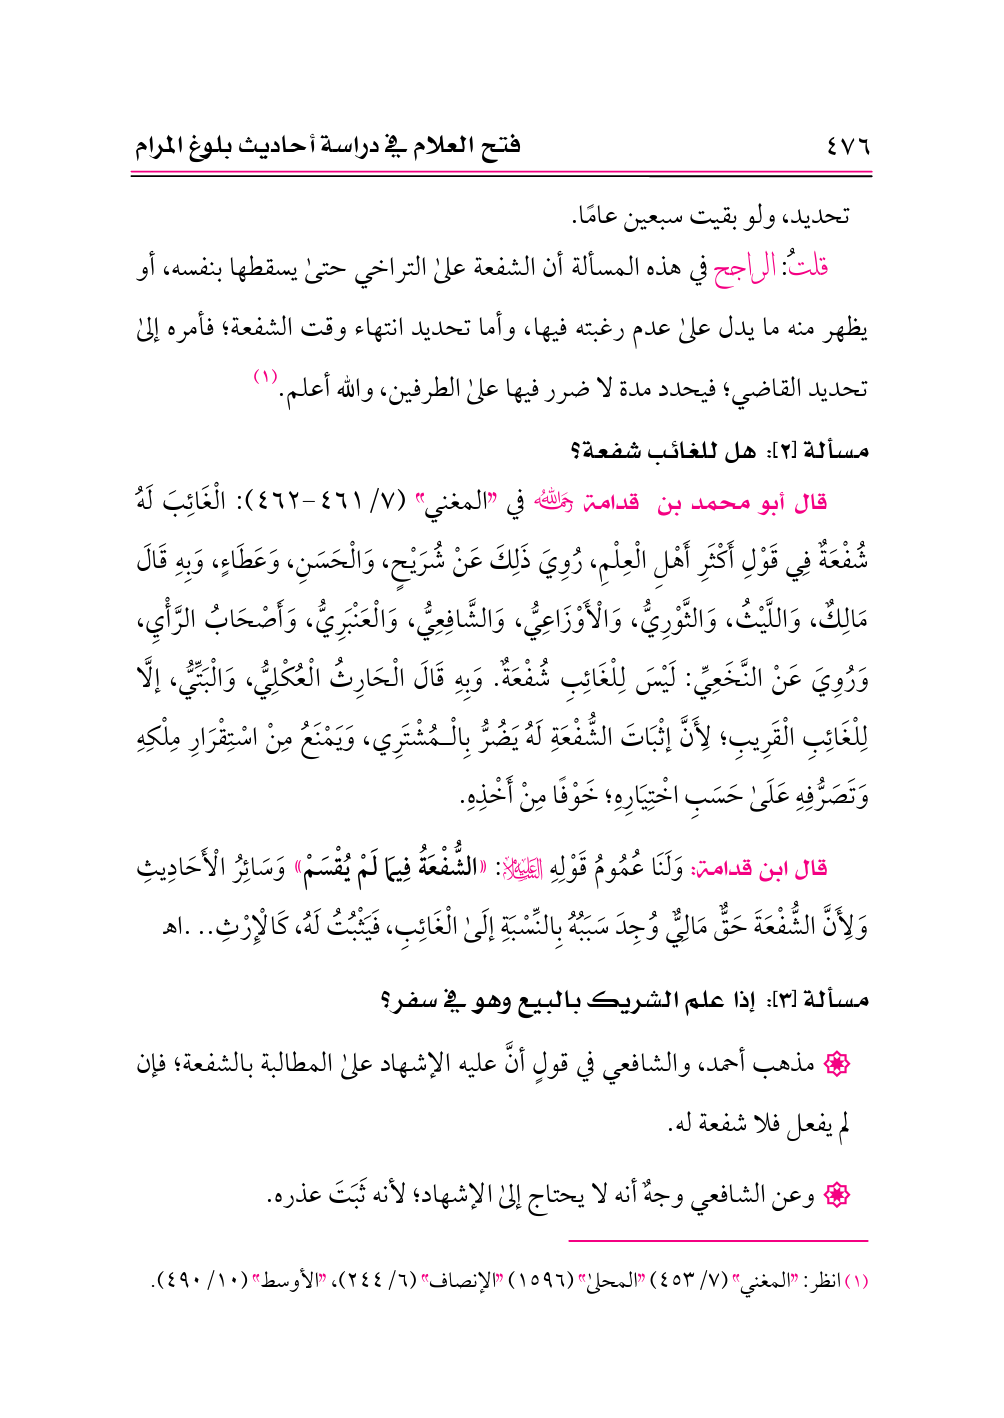 ٤٧٦ فتح العلام في دراسة أحاديث بلوغ المرام
تحديد، ولو بقيت سبعين عامًا.
قلتُ: الراجح في هذه المسألة أن الشفعة علىٰ التراخي حتىٰ يسقطها بنفسه، أو
يظهر منه ما يدل علىٰ عدم رغبته فيها، وأما تحديد انتهاء وقت الشفعة؛ فأمره إلىٰ
تحديد القاضي؛ فيحدد مدة لا ضرر فيها علىٰ الطرفين، والله أعلم.(١)
مسألة [٢]: هل للغائب شفعة؟
قال أبو محمد بن قدامة رحمه الله في "المغني" (٧/ ٤٦١-٤٦٢): الْغَائِبَ لَهُ
شُفْعَةٌ فِي قَوْلِ أَكْثَرِ أَهْلِ الْعِلْمِ، رُوِيَ ذَلِكَ عَنْ شُرَيْحٍ، وَالْحَسَنِ، وَعَطَاءٍ، وَبِهِ قَالَ
مَالِكٌ، وَاللَّيْثُ، وَالثَّوْرِيُّ، وَالْأَوْزَاعِيُّ، وَالشَّافِعِيُّ، وَالْعَنْبَرِيُّ، وَأَصْحَابُ الرَّأْيِ،
وَرُوِيَ عَنْ النَّخَعِيِّ: لَيْسَ لِلْغَائِبِ شُفْعَةٌ. وَبِهِ قَالَ الْحَارِثُ الْعُكْلِيُّ، وَالْبَتِّيُّ، إلَّا
لِلْغَائِبِ الْقَرِيبِ؛ لِأَنَّ إثْبَاتَ الشُّفْعَةِ لَهُ يَضُرُّ بِالْـمُشْتَرِي، وَيَمْنَعُ مِنْ اسْتِقْرَارِ مِلْكِهِ
وَتَصَرُّفِهِ عَلَىٰ حَسَبِ اخْتِيَارِهِ؛ خَوْفًا مِنْ أَخْذِهِ.
قال ابن قدامة: وَلَنَا عُمُومُ قَوْلِهِ عليه السلام: «الشُّفْعَةُ فِيمَا لَمْ يُقْسَمْ» وَسَائِرُ الْأَحَادِيثِ
وَلِأَنَّ الشُّفْعَةَ حَقٌّ مَالِيٌّ وُجِدَ سَبَبُهُ بِالنِّسْبَةِ إلَىٰ الْغَائِبِ، فَيَثْبُتُ لَهُ، كَالْإِرْثِ. . .اهـ
مسألة [٣]: إذا علم الشريك بالبيع وهو في سفر؟
مذهب أحمد، والشافعي في قولٍ أنَّ عليه الإشهاد علىٰ المطالبة بالشفعة؛ فإن
لم يفعل فلا شفعة له.
وعن الشافعي وجهٌ أنه لا يحتاج إلىٰ الإشهاد؛ لأنه ثَبَتَ عذره.
(١) انظر: "المغني" (٧/ ٤٥٣) "المحلىٰ" (١٥٩٦) "الإنصاف" (٦/ ٢٤٤)، "الأوسط" (١٠/ ٤٩٠).